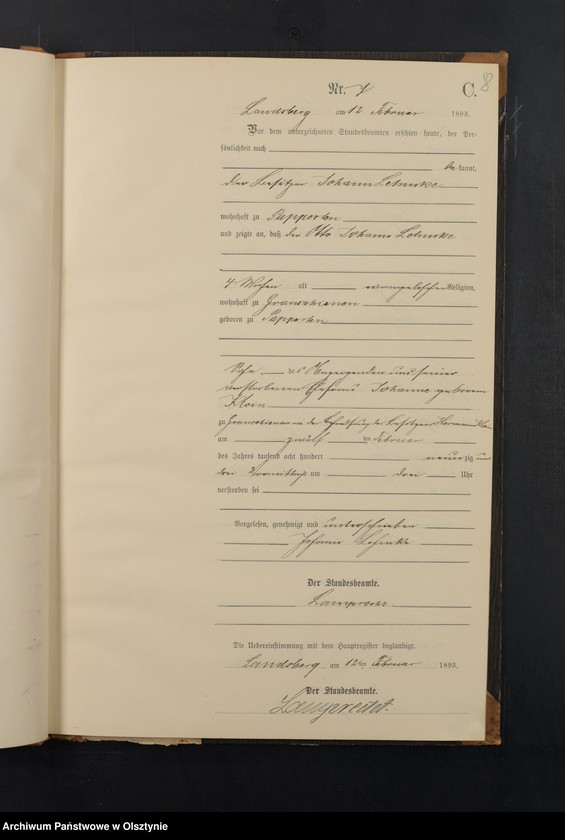 8
Nr. 7 C.
Landsberg am 12 Februar 1893.
Vor dem unterzeichneten Standesbeamten erschien heute, der Per-
sönlichkeit nach
be kannt,
der Besitzer Johann
wohnhaft zu Papperten
und zeigte an, daß der Otto Johann
4 Wochen alt evangelischer Religion,
wohnhaft zu
geboren zu Papperten
Sohn des Anzeigenden und seiner
verstorbenen Ehefrau Johanne geborenen
Klein
zu in der Behausung des Besitzers Hermann Klein
am zwölf ten Februar
des Jahres tausend acht hundert neunzig und
drei Vormittags um drei Uhr
verstorben sei
Vorgelesen, genehmigt und unterschrieben
Johann
Der Standesbeamte.
Lamprecht
Die Uebereinstimmung mit dem Hauptregister beglaubigt.
Landsberg am 12ten Februar 1893.
Der Standesbeamte.
Lamprecht.
Archiwum Państwowe w Olsztynie